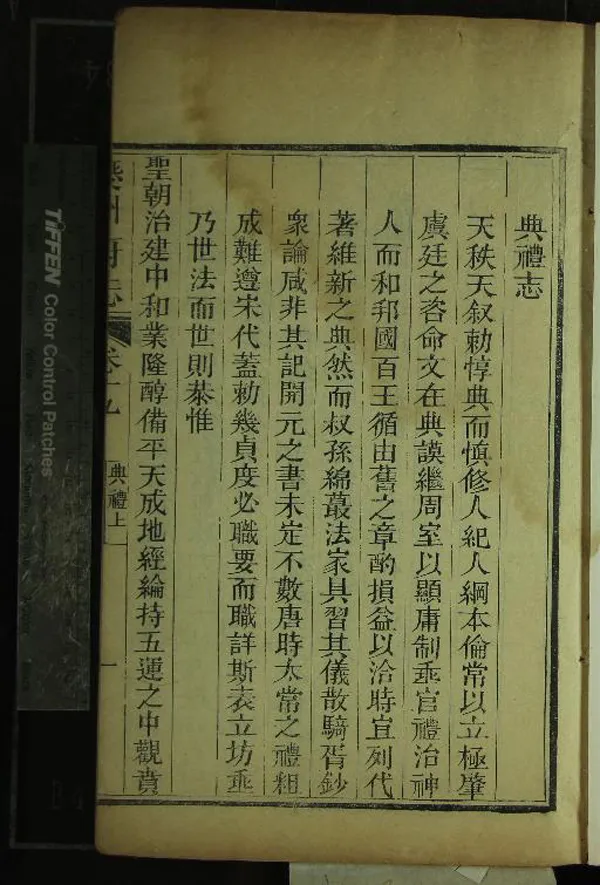 典禮志
天秩天叙勅惇典而慎修人紀人綱本倫常以立極肇
虞廷之咨命文在典謨繼周室以顯庸制垂官禮治神
人而和邦國百王循由舊之章酌損益以洽時宜列代
著維新之典然而叔孫綿蕞法家具習其儀散騎胥鈔
衆論咸非其記開元之書未定不數唐時太常之禮粗
成難遵宋代蓋勅幾貞度必職要而職詳斯表立坊垂
乃世法而世則恭惟
聖朝治建中和業隆醇備平天成地經綸持五運之中觀賁
州府志
卷十九
典禮上
一
TIFFEN Color Control Patches